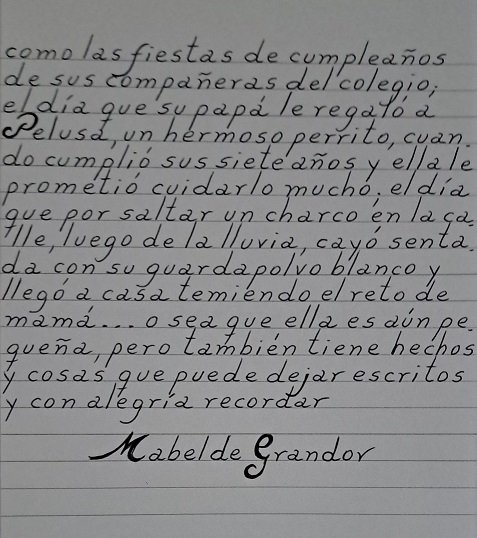 como las fiestas de cumpleaños
de sus compañeras del colegio;
el día que su papá le regaló a
Pelusa, un hermoso perrito, cuan-
do cumplió sus siete años y ella le
prometió cuidarlo mucho; el día
que por saltar un charco en la ca-
lle, luego de la lluvia, cayó senta-
da con su guardapolvo blanco y
llegó a casa temiendo el reto de
mamá... o sea que ella es aún pe-
queña, pero también tiene hechos
y cosas que puede dejar escritos
y con alegría recordar
Mabel de Grandov